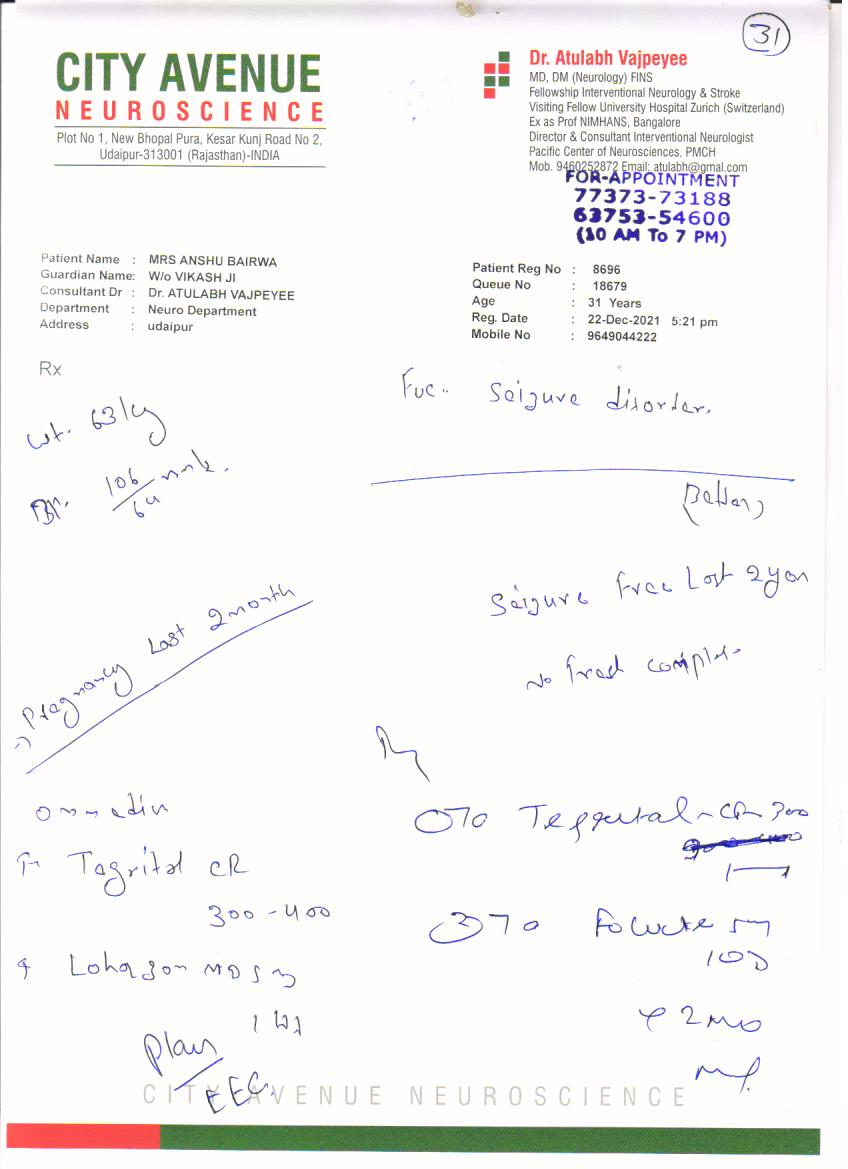 31
CITY AVENUE
NEUROSCIENCE
Plot No 1, New Bhopal Pura, Kesar Kunj Road No 2,
Udaipur-313001 (Rajasthan)-INDIA
Dr. Atulabh Vajpeyee
MD, DM (Neurology) FINS
Fellowship Interventional Neurology & Stroke
Visiting Fellow University Hospital Zurich (Switzerland)
Ex as Prof NIMHANS, Bangalore
Director & Consultant Interventional Neurologist
Pacific Center of Neurosciences, PMCH
Mob. 9460252872 Email: atulabh@gmal.com
FOR-APPOINTMENT
77373-73188
63753-54600
(10 AM To 7 PM)
Patient Name : MRS ANSHU BAIRWA
Guardian Name: W/o VIKASH JI
Consultant Dr : Dr. ATULABH VAJPEYEE
Department : Neuro Department
Address : udaipur
Patient Reg No : 8696
Queue No : 18679
Age : 31 Years
Reg. Date : 22-Dec-2021 5:21 pm
Mobile No : 9649044222
Rx
Seizure disorder.
wt. 63 kg
106/64
Seizure Free Last 2 year
Pregnancy Last 2 month
CR 300
CR
300-400
MD
Plan
EEG
CITY AVENUE NEUROSCIENCE